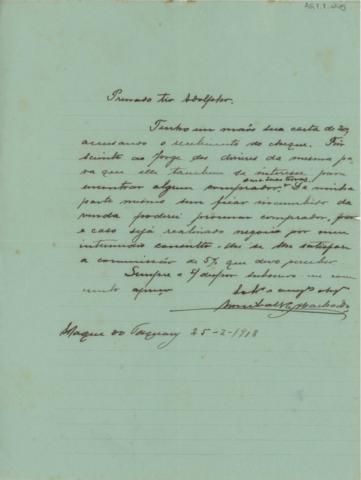 Presado tio Adolpho.
Tenho em mãos sua carta de 20,
accusando o recebimento do cheque. Fiz
sciente ao Jorge dos dizeres da mesma pa
ra que elle tambem se interesse para
encontrar algum comprador. Da minha
parte mesmo sem ficar incumbido da
venda poderei procurar comprador, par
e caso seja realisado negocio por meu
intermedio se me satisfaz
a commissão de 5% que devo perceber
Sempre a dispor subscrevo com
apreço
Machado
25-2-1918